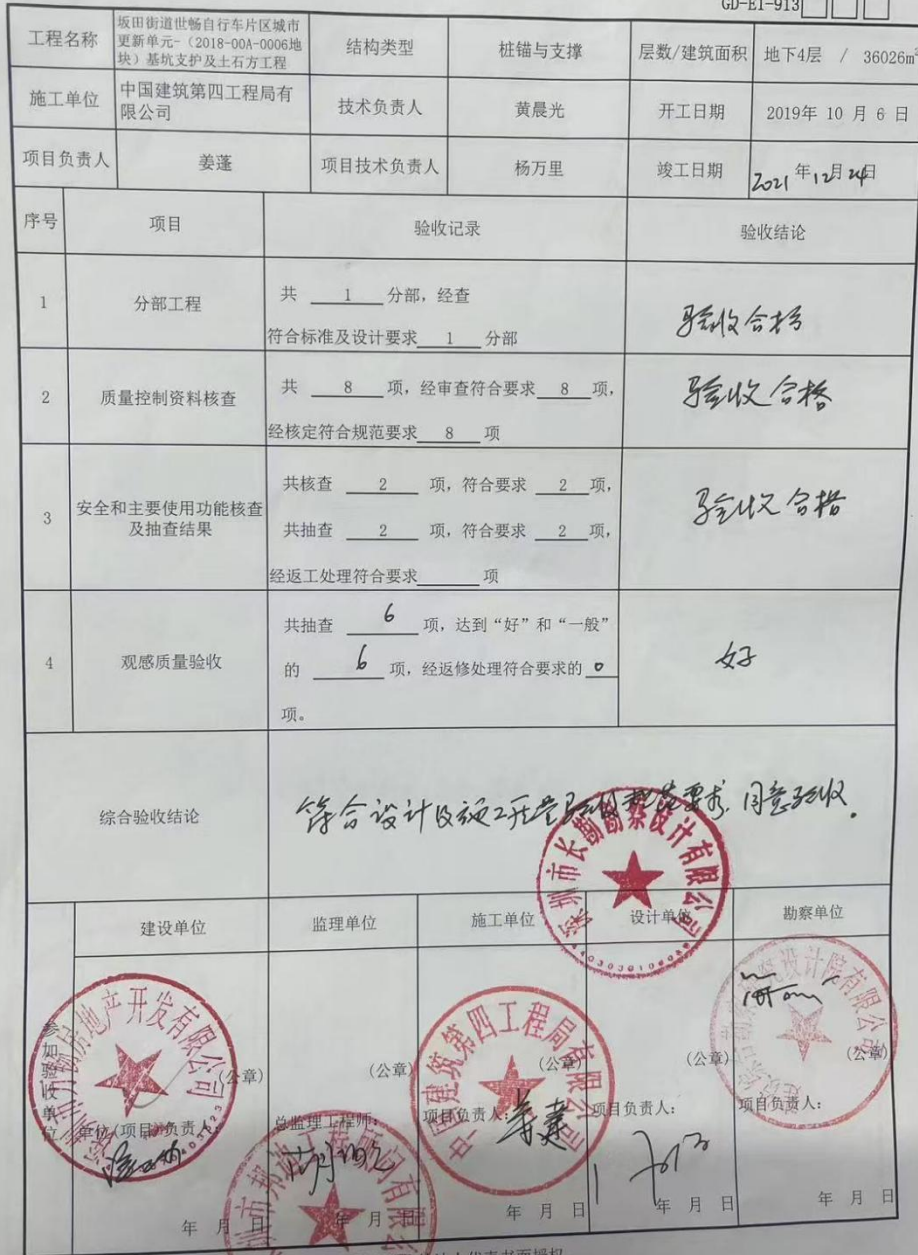 GD-E1-913
工程名称
坂田街道世畅自行车片区城市
更新单元-（2018-00A-0006地
块）基坑支护及土石方工程
结构类型
桩锚与支撑
层数/建筑面积
地下4层 / 36026m²
施工单位
中国建筑第四工程局有
限公司
技术负责人
黄晨光
开工日期
2019年 10 月 6 日
项目负责人
姜蓬
项目技术负责人
杨万里
竣工日期
2021年12月24日
序号
项目
验收记录
验收结论
1
分部工程
共 1 分部，经查
符合标准及设计要求 1 分部
验收合格
2
质量控制资料核查
共 8 项，经审查符合要求 8 项，
经核定符合规范要求 8 项
验收合格
3
安全和主要使用功能核查
及抽查结果
共核查 2 项，符合要求 2 项，
共抽查 2 项，符合要求 2 项，
经返工处理符合要求 项
验收合格
4
观感质量验收
共抽查 6 项，达到“好”和“一般”
的 6 项，经返修处理符合要求的 0
项。
好
综合验收结论
符合设计及施工质量验收规范要求，同意验收.
深圳市长勘勘察设计有限公司
参加验收单位
建设单位
监理单位
施工单位
设计单位
勘察单位
房地产开发有限公司
中国建筑第四工程局有限公司
勘察设计院有限公司
(公章)
(公章)
(公章)
(公章)
(公章)
单位(项目)负责人
总监理工程师:
项目负责人:
姜蓬
项目负责人:
项目负责人:
年 月 日
年 月 日
年 月 日
年 月 日
年 月 日
代表书面授权